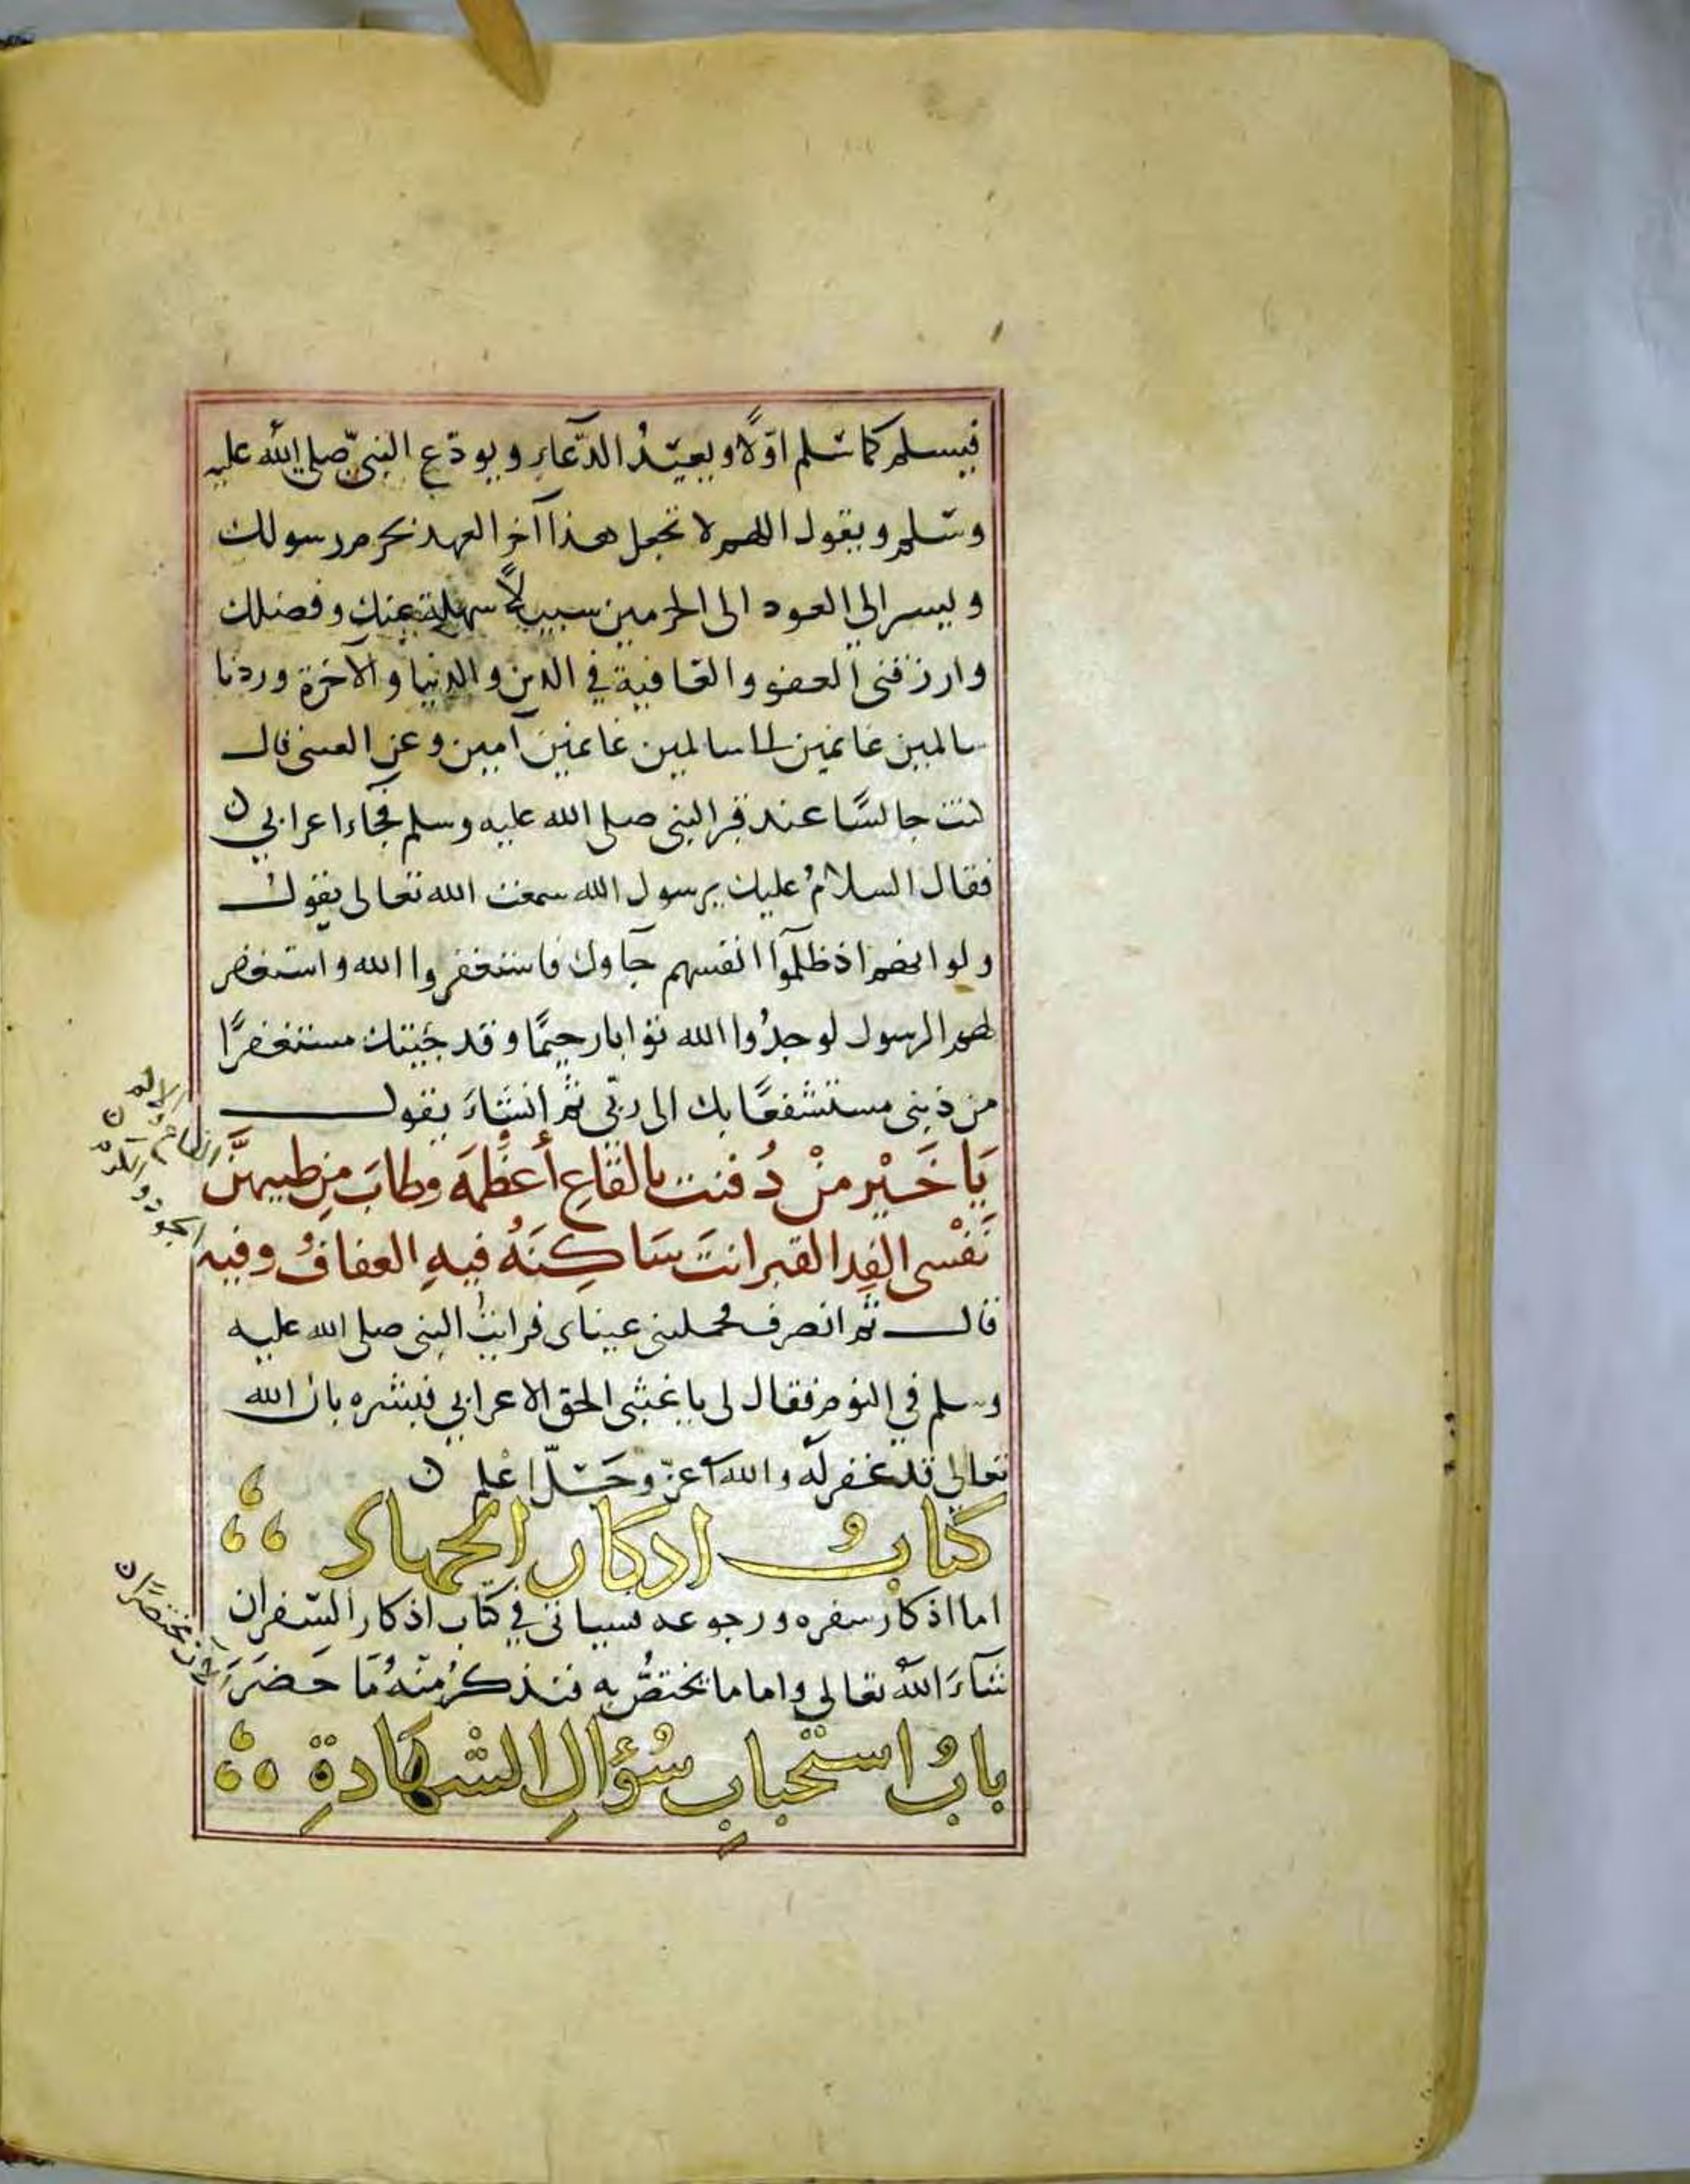 فيسلم كما سلم اوّلًا ويعيدُ الدّعاء ويودّع النبيّ صلى الله عليه
وسلم ويقول اللهم لا تجعل هذا آخر العهد بحرم رسولك
ويسر الي العود الى الحرمين سبيلًا سهلة بمنك وفضلك
وارزقنى العفو والعافية في الدين والدنيا والآخرة وردنا
سالمين غانمين الى سالمين غانمين آمين وعن العتبى قال
كنت جالسًا عند قبر النبى صلى الله عليه وسلم فجاء اعرابي ن
فقال السلامُ عليك يرسول الله سمعت الله تعالى يقول
ولو انهم اذ ظلموآ انفسهم جآوك فاستغفروا الله واستغفر
لهم الرسول لوجدُوا الله توابا رحيمًا وقد جَيتك مستغفرًا
من ذنبى مستشفعًا بك الى ربّى ثم انشاءَ يقول
يَا خَيْر منْ دُفنت بالقاعِ أعظمُه وطابَ مِن طيبهنَّ القاع والاكم ن
نَفْسى الفِدا لقبر انتَ سَاكِنَهُ فيهِ العفافُ وفيه الجود والكرم
قال ثم انصرف فحملتنى عيناى فرايتُ النبى صلى الله عليه
وسلم في النوم فقال لى يا عتبى الحق الاعرابي فبشره بان الله
تعالى قد غفر له والله عزّ وجَلّ اعلم ن
كتابُ اذكار الجهاد
اما اذكارُ سفره ورجوعه فسياتى في كتاب اذكار السّفر ان
شآءَ اللهُ تعالى واما ما يختصُّ به فنذكرُ منهُ مَا حَضرَ الآن مختصرًا ن
بابُ استحبابِ سُؤالِ الشهادةِ